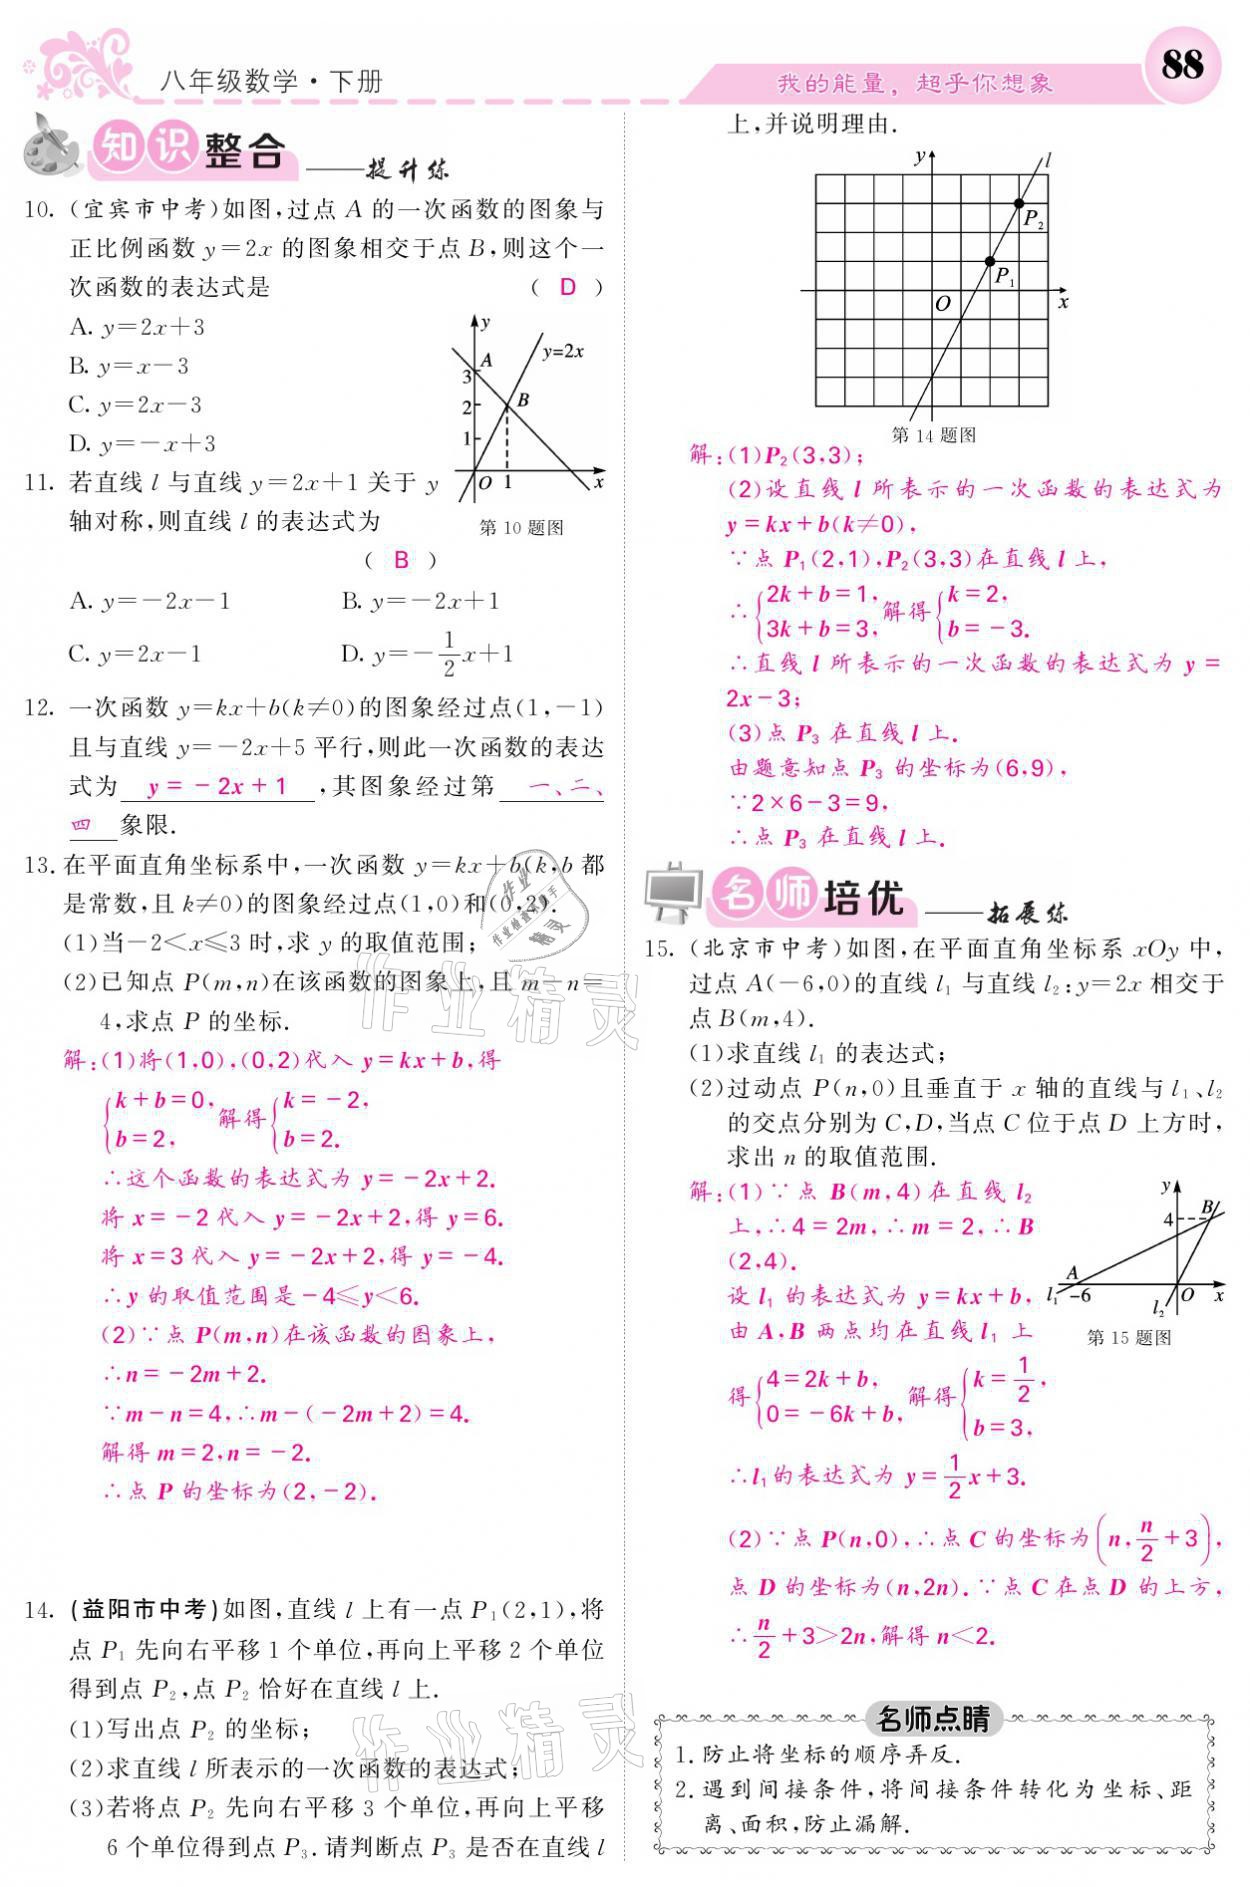 八年级数学·下册
我的能量，超乎你想象
88
知识整合——提升练
10. (宜宾市中考)如图,过点 A 的一次函数的图象与
正比例函数 y=2x 的图象相交于点 B,则这个一
次函数的表达式是 ( D )
A. y=2x+3
B. y=x-3
C. y=2x-3
D. y=-x+3
y
A
y=2x
3
2
B
1
O
1
x
第 10 题图
11. 若直线 l 与直线 y=2x+1 关于 y
轴对称,则直线 l 的表达式为
( B )
A. y=-2x-1 B. y=-2x+1
C. y=2x-1 D. y=-1/2x+1
12. 一次函数 y=kx+b(k≠0)的图象经过点(1,-1)
且与直线 y=-2x+5 平行,则此一次函数的表达
式为 y=-2x+1 ,其图象经过第 一、二、
四 象限.
13. 在平面直角坐标系中,一次函数 y=kx+b(k,b 都
是常数,且 k≠0)的图象经过点(1,0)和(0,2).
(1)当-2<x≤3 时,求 y 的取值范围;
(2)已知点 P(m,n)在该函数的图象上,且 m-n=
4,求点 P 的坐标.
解:(1)将(1,0),(0,2)代入 y=kx+b,得
{k+b=0, b=2, 解得{k=-2, b=2.
∴这个函数的表达式为 y=-2x+2.
将 x=-2 代入 y=-2x+2,得 y=6.
将 x=3 代入 y=-2x+2,得 y=-4.
∴y 的取值范围是-4≤y<6.
(2)∵点 P(m,n)在该函数的图象上,
∴n=-2m+2.
∵m-n=4,∴m-(-2m+2)=4.
解得 m=2,n=-2.
∴点 P 的坐标为(2,-2).
14. (益阳市中考)如图,直线 l 上有一点 P₁(2,1),将
点 P₁ 先向右平移 1 个单位,再向上平移 2 个单位
得到点 P₂,点 P₂ 恰好在直线 l 上.
(1)写出点 P₂ 的坐标;
(2)求直线 l 所表示的一次函数的表达式;
(3)若将点 P₂ 先向右平移 3 个单位,再向上平移
6 个单位得到点 P₃.请判断点 P₃ 是否在直线 l
上,并说明理由.
y
l
P₂
P₁
O
x
第 14 题图
解:(1)P₂(3,3);
(2)设直线 l 所表示的一次函数的表达式为
y=kx+b(k≠0),
∵点 P₁(2,1),P₂(3,3)在直线 l 上,
∴{2k+b=1, 3k+b=3, 解得{k=2, b=-3.
∴直线 l 所表示的一次函数的表达式为 y=
2x-3;
(3)点 P₃ 在直线 l 上.
由题意知点 P₃ 的坐标为(6,9),
∵2×6-3=9,
∴点 P₃ 在直线 l 上.
名师培优——拓展练
15. (北京市中考)如图,在平面直角坐标系 xOy 中,
过点 A(-6,0)的直线 l₁ 与直线 l₂:y=2x 相交于
点 B(m,4).
(1)求直线 l₁ 的表达式;
(2)过动点 P(n,0)且垂直于 x 轴的直线与 l₁、l₂
的交点分别为 C,D,当点 C 位于点 D 上方时,
求出 n 的取值范围.
解:(1)∵点 B(m,4)在直线 l₂
上,∴4=2m,∴m=2,∴B
(2,4).
设 l₁ 的表达式为 y=kx+b,
由 A,B 两点均在直线 l₁ 上
得{4=2k+b, 0=-6k+b, 解得{k=1/2, b=3,
∴l₁的表达式为 y=1/2x+3.
y
4
B
A
l₁
-6
l₂
O
x
第 15 题图
(2)∵点 P(n,0),∴点 C 的坐标为(n,n/2+3),
点 D 的坐标为(n,2n).∵点 C 在点 D 的上方,
∴n/2+3>2n,解得 n<2.
名师点睛
1. 防止将坐标的顺序弄反.
2. 遇到间接条件,将间接条件转化为坐标、距
离、面积,防止漏解.
作业精灵
作业精灵